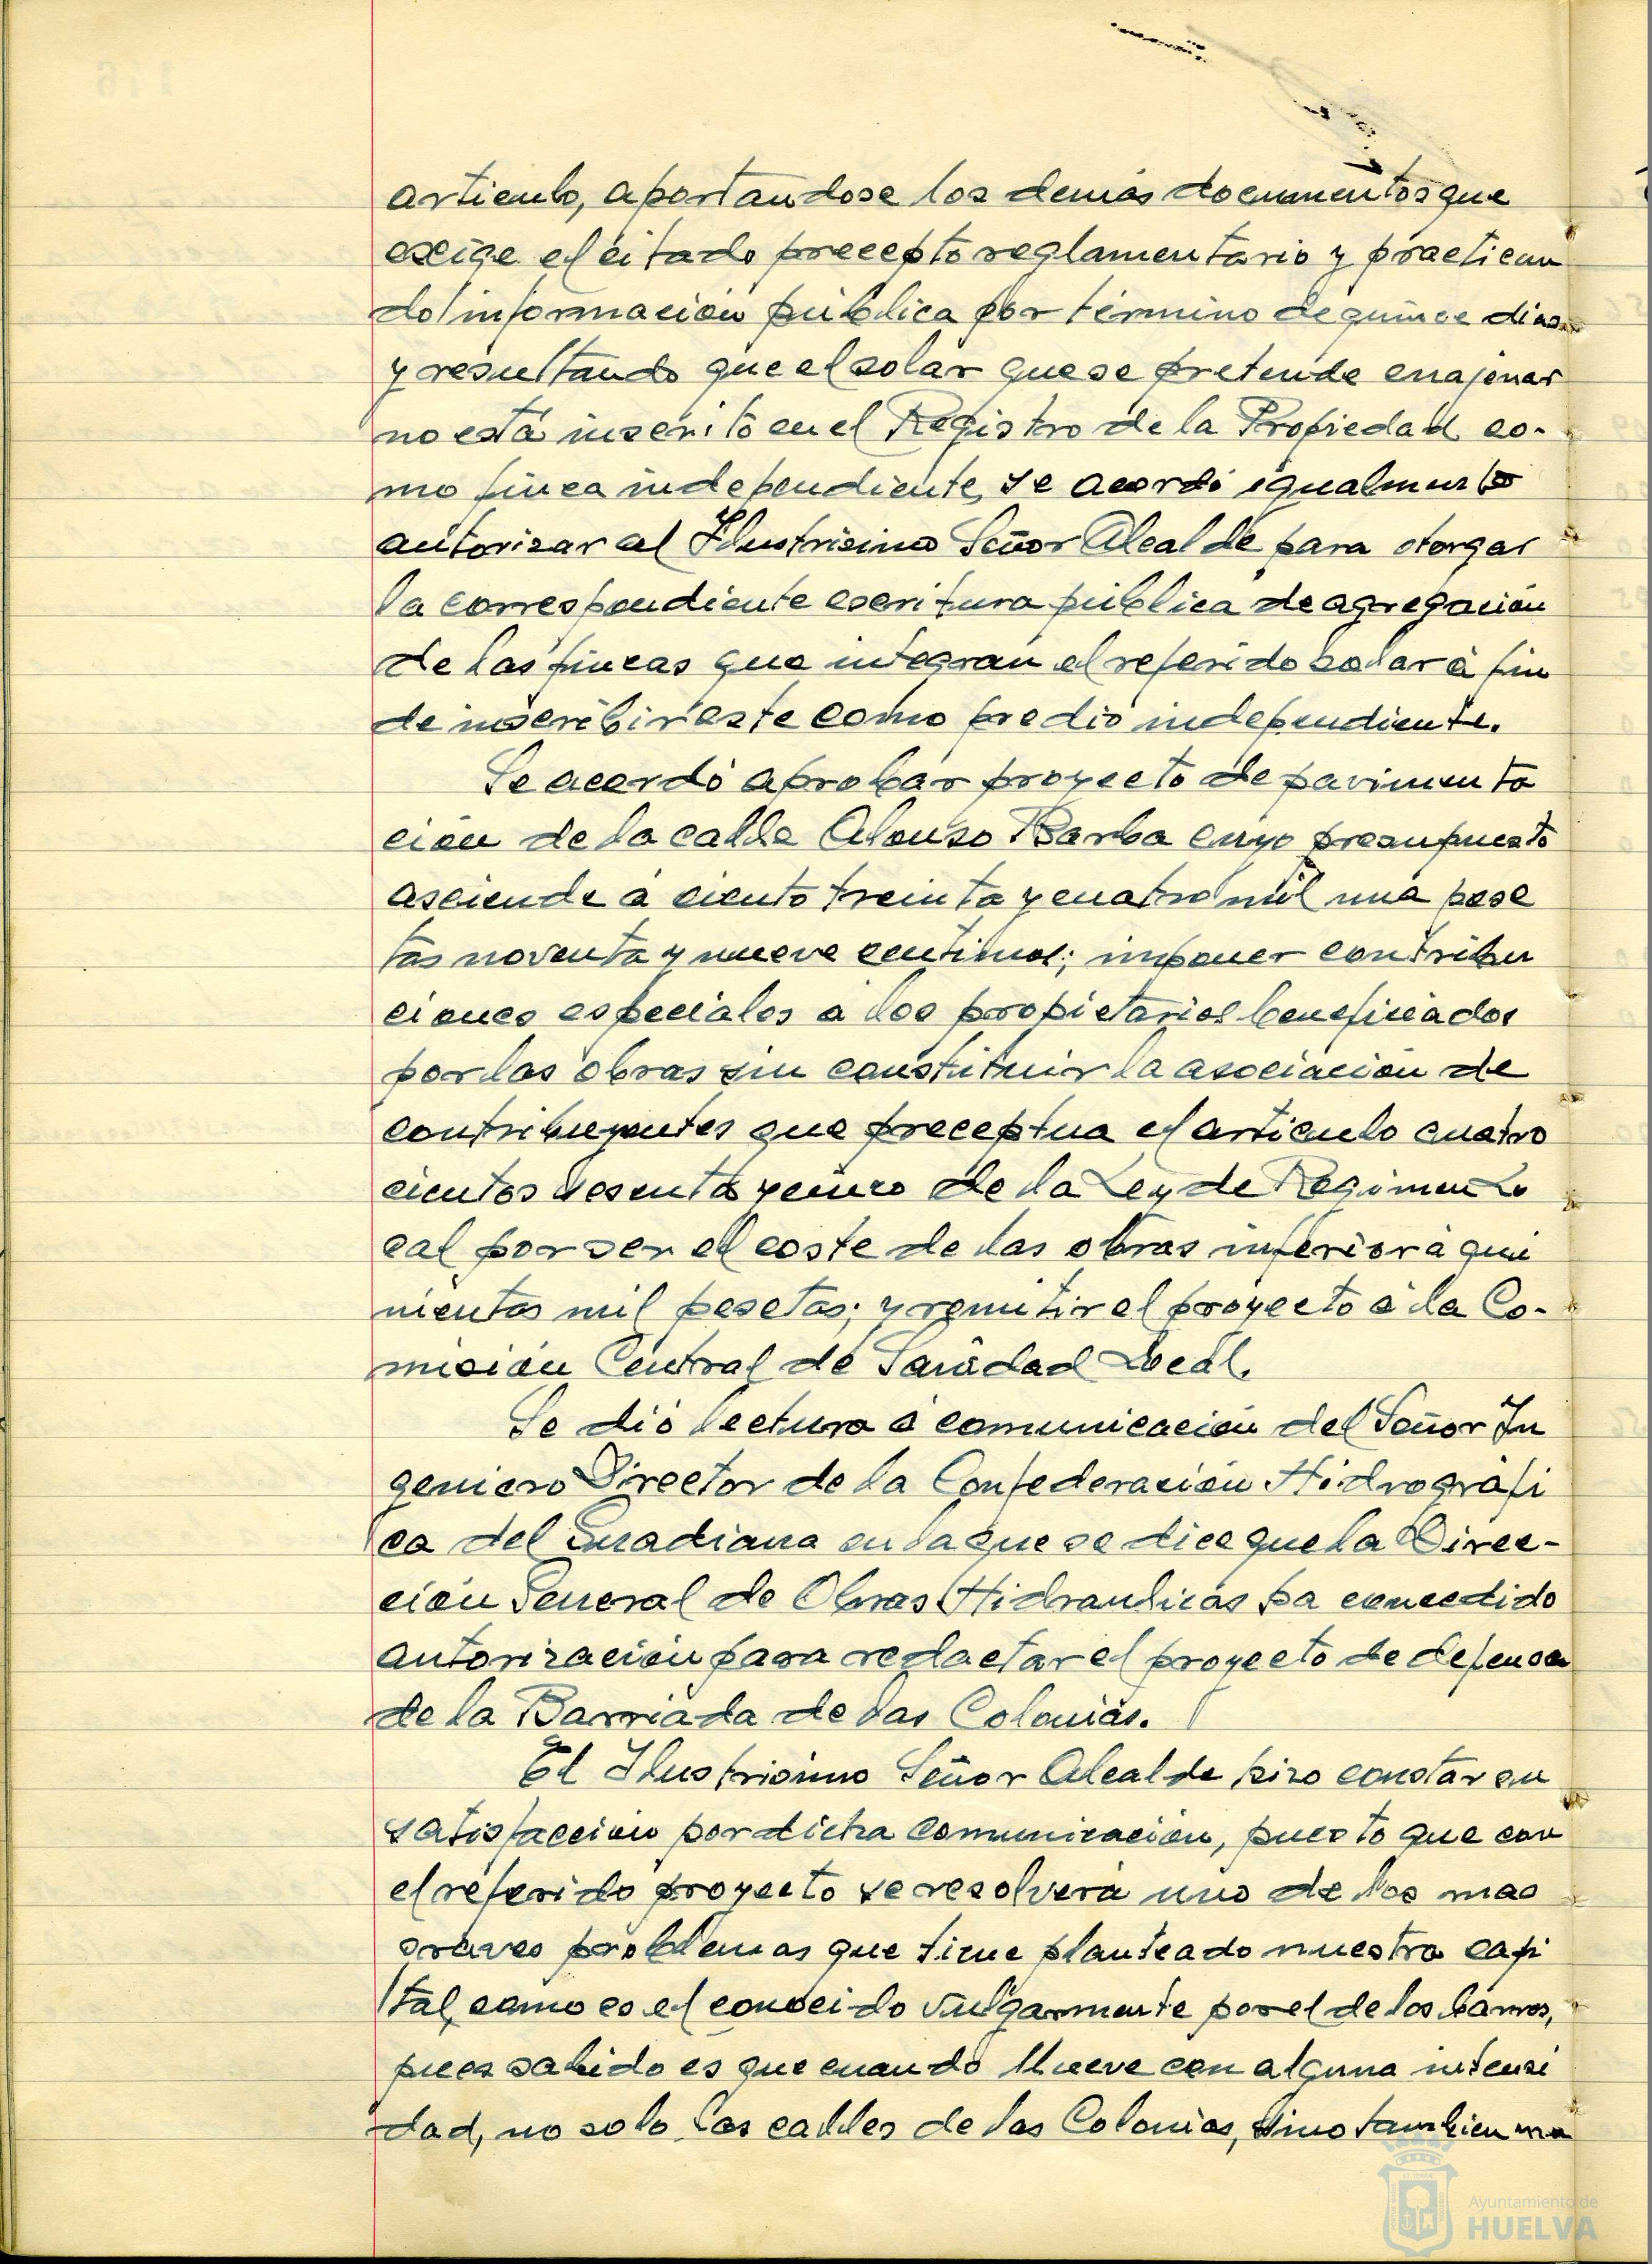 articulo, aportandose los demás documentos que
exige el citado precepto reglamentario y practican
do información pública por término de quince dias
y resultando que el solar que se pretende enajenar
no está inscrito en el Registro de la Propiedad co-
mo finca independiente, se acordó igualmente
autorizar al Ilustrisimo Señor Alcalde para otorgar
la correspondiente escritura pública de agregación
de las fincas que integran el referido solar á fin
de inscribir este como predio independiente.
Se acordó aprobar proyecto de pavimenta
cion de la calle Alonso Barba cuyo presupuesto
asciende a ciento treinta y cuatro mil una pese
tas noventa y nueve centimos; imponer contribu
ciones especiales a los propietarios beneficiados
por las obras sin constituir la asociación de
contribuyentes que preceptua el articulo cuatro
cientos sesenta y cinco de la Ley de Regimen Lo
cal por ser el coste de las obras inferior á qui
nientas mil pesetas; y remitir el proyecto a la Co-
misión Central de Sanidad Local.
Se dió lectura a comunicación del Señor In
geniero Director de la Confederación Hidrográfi
ca del Guadiana en la que se dice que la Direc-
ción General de Obras Hidraulicas ha concedido
autorización para redactar el proyecto de defensa
de la Barriada de las Colonias.
El Ilustrisimo Señor Alcalde hizo constar su
satisfacción por dicha comunicación, puesto que con
el referido proyecto se resolverá uno de los mas
graves problemas que tiene planteado nuestra capi
tal, como es el conocido vulgarmente por el de los barros,
pues sabido es que cuando llueve con alguna intensi
dad, no solo las calles de las Colonias, sino tambien
Ayuntamiento de
HUELVA